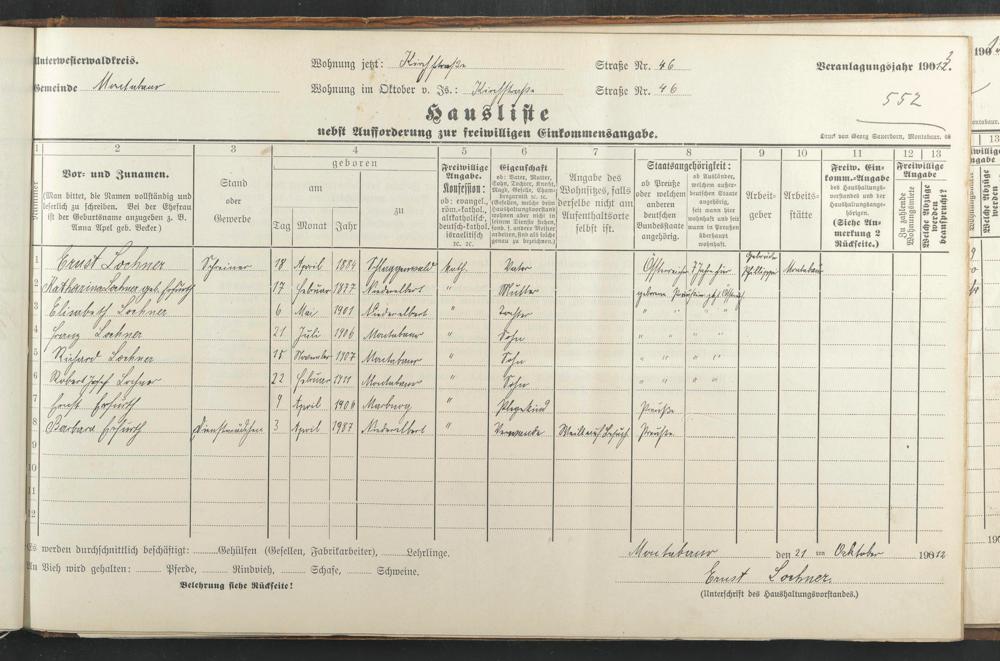 Unterwesterwaldkreis.
Wohnung jetzt: Kirchstraße Straße Nr. 46
Veranlagungsjahr 190
Gemeinde Montabaur
Wohnung im Oktober v. Js.: Kirchstraße Straße Nr. 46
552
Hausliste
nebst Aufforderung zur freiwilligen Einkommensangabe.
Druck von Georg Sauerborn, Montabaur.
1 2 3 4 5 6 7 8 9 10 11 12 13
Nummer
Vor- und Zunamen.
(Man bittet, die Namen vollständig und
leserlich zu schreiben. Bei der Ehefrau
ist der Geburtsname anzugeben z. B.
Anna Apel geb. Becker.)
Stand
oder
Gewerbe
geboren
am
zu
Tag Monat Jahr
Freiwillige
Angabe.
Konfession:
ob: evangel.,
röm.-kathol.,
altkatholisch,
deutsch-kathol.
israelitisch
ec. ec.
Eigenschaft
ob: Vater, Mutter,
Sohn, Tochter, Knecht,
Magd, Geselle,
Angabe des
Wohnsitzes, falls
derselbe nicht am
Aufenthaltsorte
selbst ist.
Staatsangehörigkeit:
ob Preuße
oder welchem
anderen
deutschen
Bundesstaate
angehörig.
ob Ausländer,
welchem außer-
deutschen Staate
angehörig,
seit wann hier
wohnhaft und seit
wann in Preußen
überhaupt
wohnhaft.
Arbeit-
geber
Arbeits-
stätte
Freiw. Ein-
komm.-Angabe
des Haushaltungs-
vorstandes und der
Haushaltungsange-
hörigen.
(Siehe An-
merkung 2
Rückseite.)
Freiwillige
Angabe
Zu zahlende
Wohnungsmiete
Welche Abzüge
werden
beansprucht?
1 Ernst Lochner Schreiner 18 April 1884 Schlaggenwald kath. Vater Österreicher 7 Jahre hier Gebrüder Phillippi Montabaur
2 Katharina Lochner geb. Erfurth 17 Februar 1877 Niederelbert " Mutter geborene Preußin jetzt Österreich
3 Elisabeth Lochner 6 Mai 1901 Niederelbert " Tochter " " " "
4 Franz Lochner 21 Juli 1906 Montabaur " Sohn " " "
5 Richard Lochner 18 November 1907 Montabaur " Sohn " " " "
6 Robert Josef Lochner 22 Februar 1911 Montabaur " Sohn " " " "
7 Ernst Erfurth 9 April 1906 Marburg " Pflegekind Preuße
8 Barbara Erfurth Dienstmädchen 3 April 1987 Niederelbert " Verwande Weilt auf Besuch Preuße
9
10
11
12
Es werden durchschnittlich beschäftigt: Gehülfen (Gesellen, Fabrikarbeiter), Lehrlinge.
Montabaur den 21 ten Ocktober 1912
An Vieh wird gehalten: Pferde, Rindvieh, Schafe, Schweine.
Ernst Lochner.
Belehrung siehe Rückseite!
(Unterschrift des Haushaltungsvorstandes.)